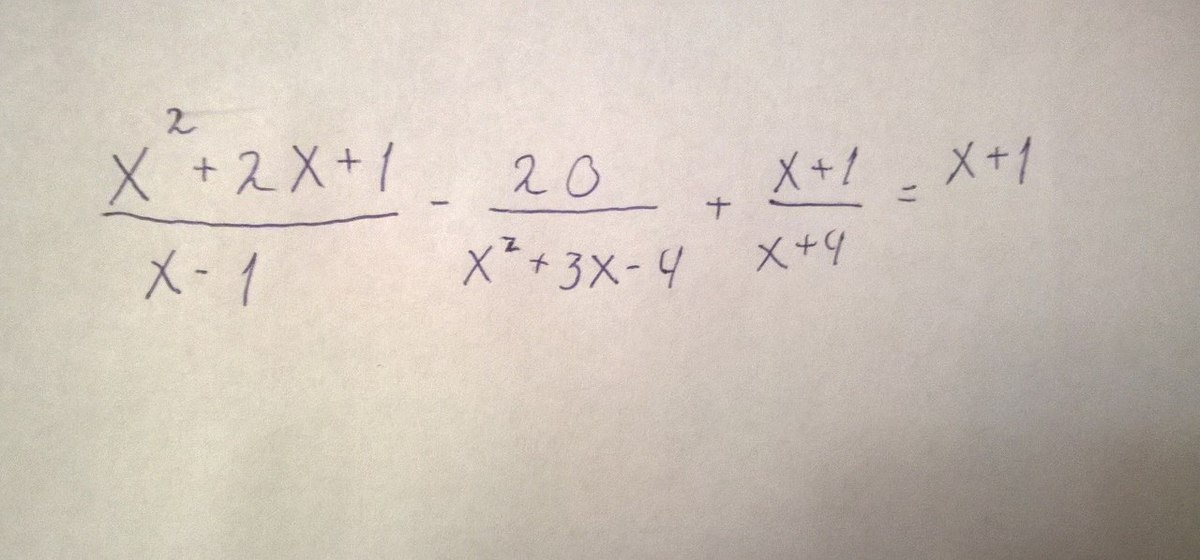 x²+2x+1 / x-1 - 20 / x²+3x-4 + x+1 / x+4 = x+1